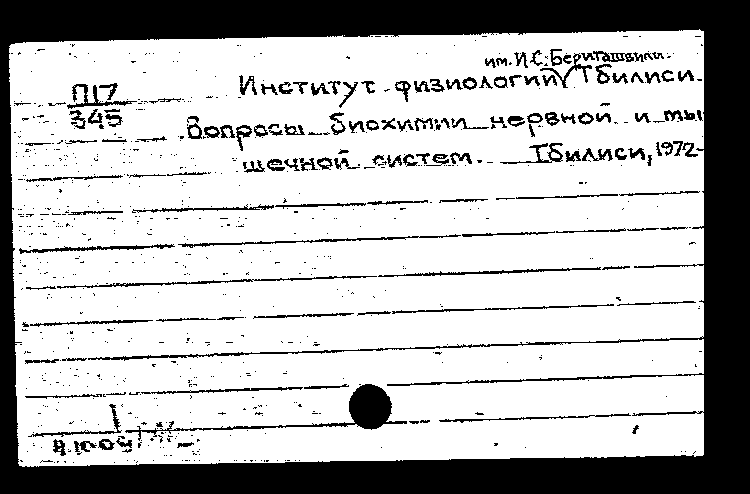 им. И.С. Бериташвили.
П17 Институт физиологии Тбилиси.
345
Вопросы биохимии нервной и мы
шечной систем. Тбилиси, 1972-